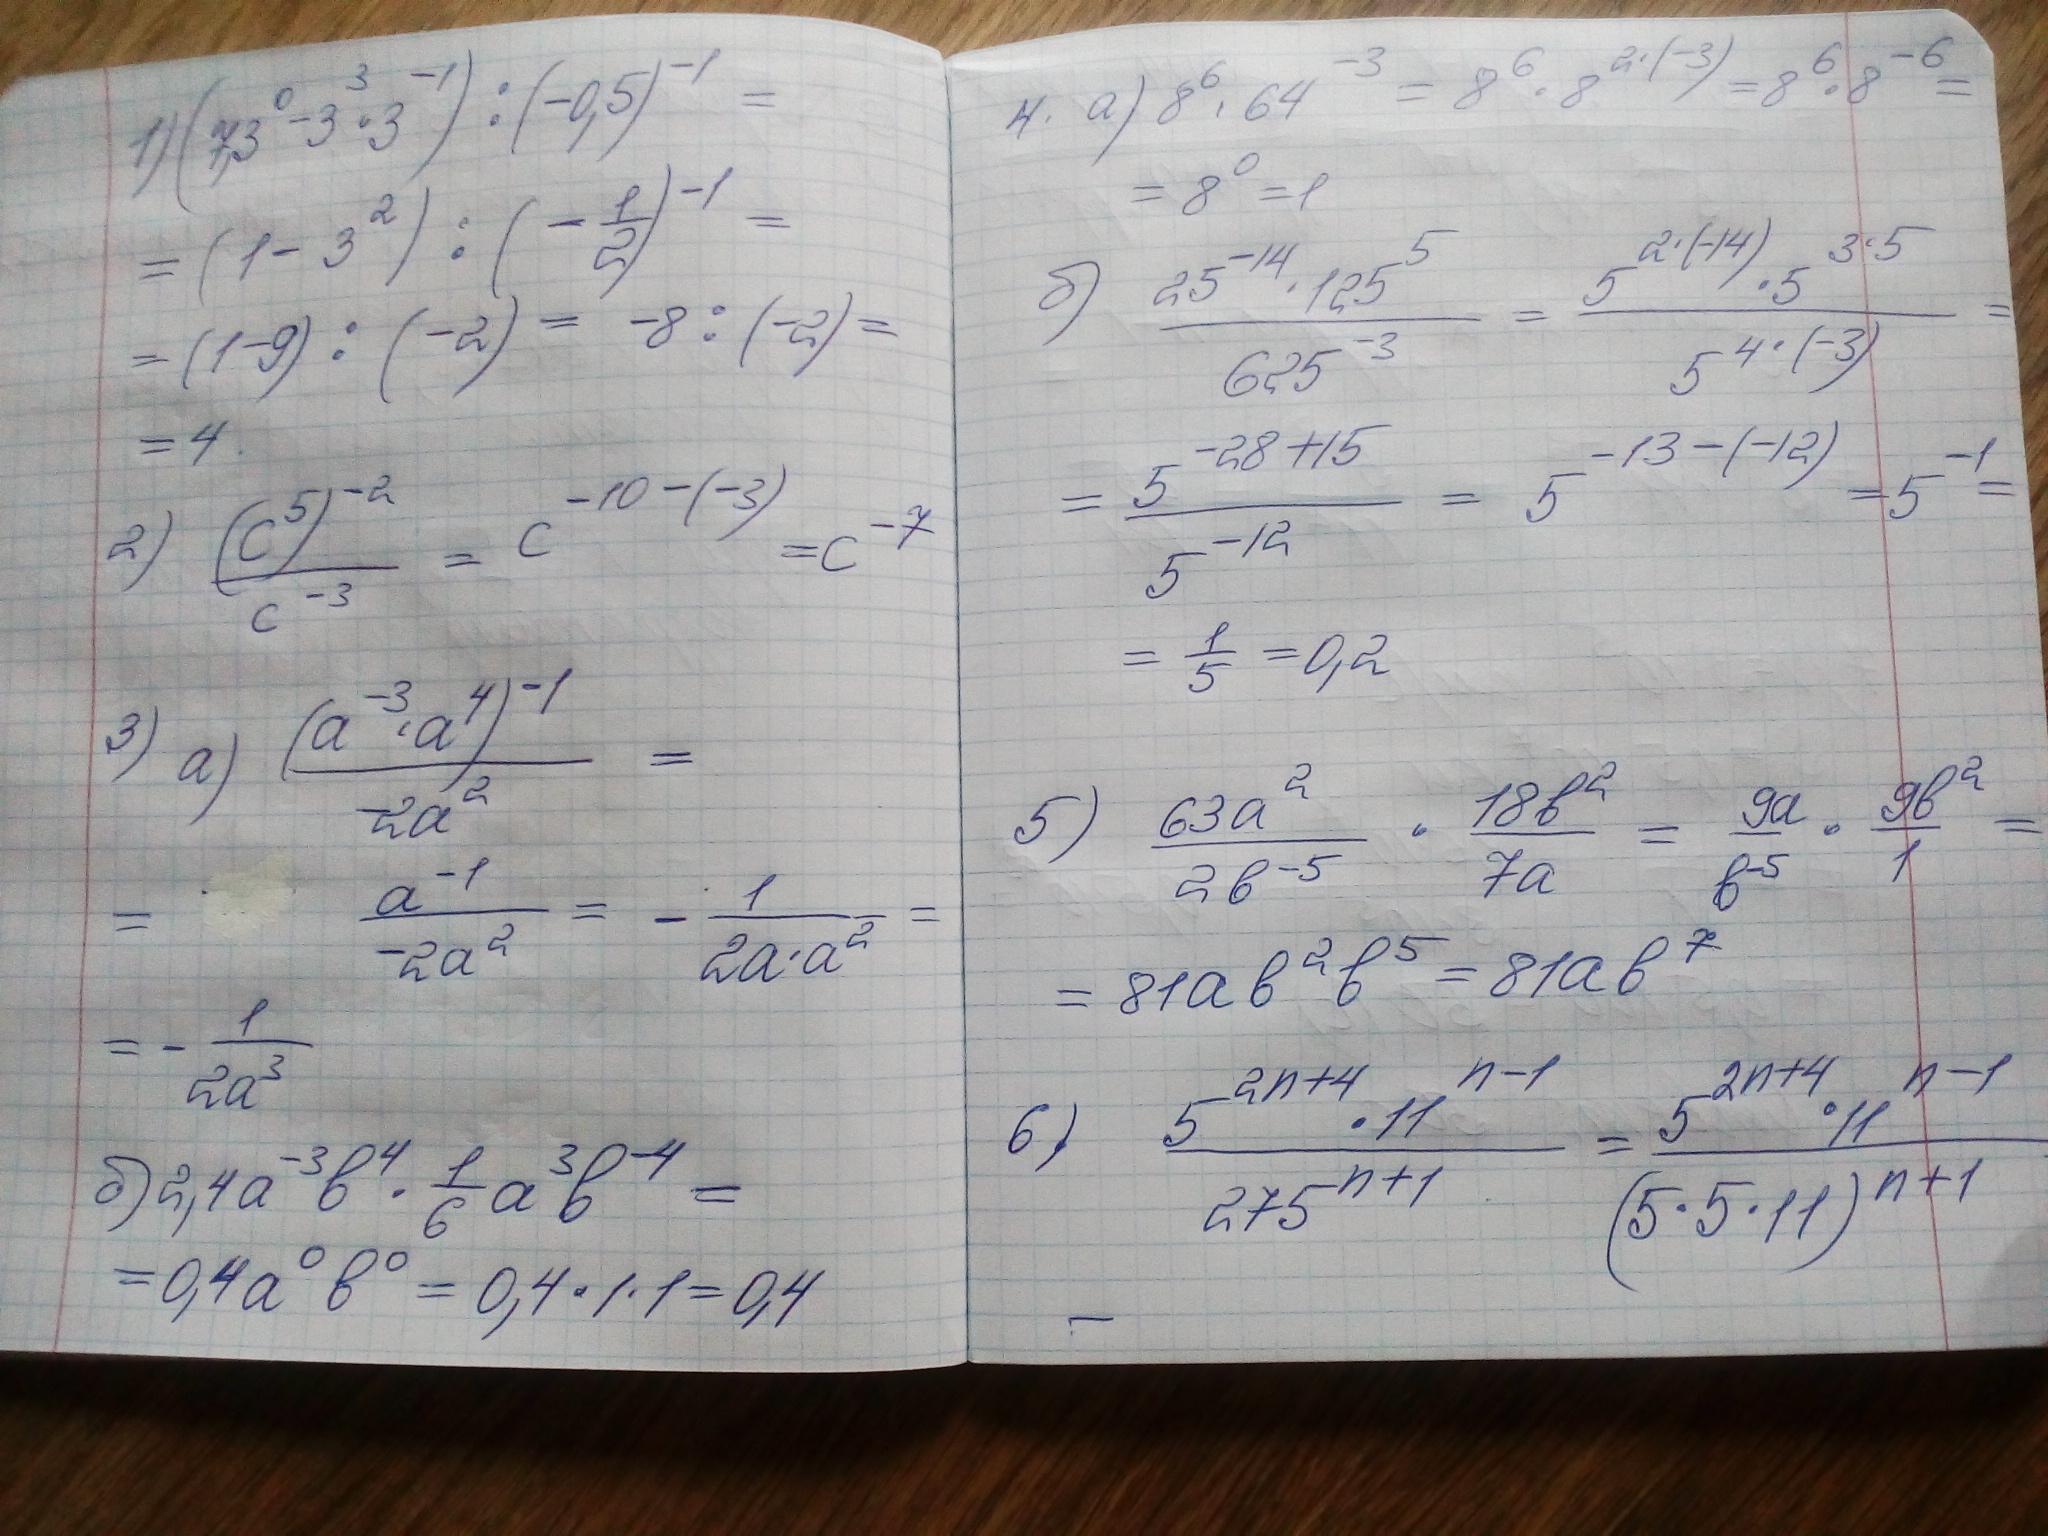 1) (7,3⁰ - 3³ · 3⁻¹) : (-0,5)⁻¹ =
= (1 - 3²) : (-1/2)⁻¹ =
= (1-9) : (-2) = -8 : (-2) =
= 4.
2) (c⁵)⁻²/c⁻³ = c⁻¹⁰⁻⁽⁻³⁾ = c⁻⁷
3) а) (a⁻³ · a⁴)⁻¹/-2a² =
= a⁻¹/-2a² = - 1/2a·a² =
= - 1/2a³
б) 2,4a⁻³b⁴ · 1/6 a³b⁻⁴ =
= 0,4a⁰b⁰ = 0,4 · 1 · 1 = 0,4
4. а) 8⁶ · 64⁻³ = 8⁶ · 8^(2·(-3)) = 8⁶ · 8⁻⁶ =
= 8⁰ = 1
б) 25⁻¹⁴ · 125⁵/625⁻³ = 5^(2·(-14)) · 5^(3·5)/5^(4·(-3)) =
= 5^(-28+15)/5⁻¹² = 5^(-13-(-12)) = 5⁻¹ =
= 1/5 = 0,2
5) 63a²/2b⁻⁵ · 18b²/7a = 9a/b⁻⁵ · 9b²/1 =
= 81ab²b⁵ = 81ab⁷
6) 5^(2n+4) · 11^(n-1)/275^(n+1) = 5^(2n+4) · 11^(n-1)/(5·5·11)^(n+1)